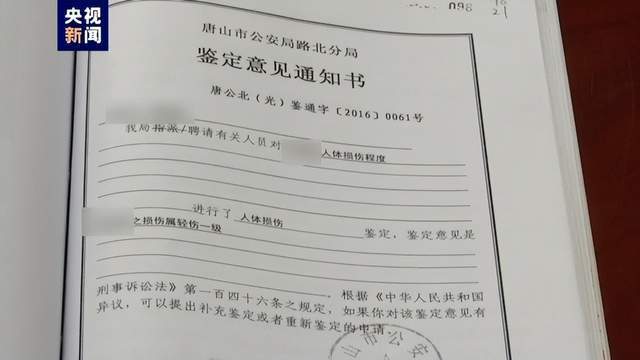 央视
新闻
098
21
唐山市公安局路北分局
鉴定意见通知书
唐公北（光）鉴通字〔2016〕0061号
我局指派/聘请有关人员对 人体损伤程度
进行了 人体损伤 鉴定，鉴定意见是
之损伤属轻伤一级
根据《中华人民共和国
刑事诉讼法》第一百四十六条之规定，如果你对该鉴定意见有
异议，可以提出补充鉴定或者重新鉴定的申请
山市公安